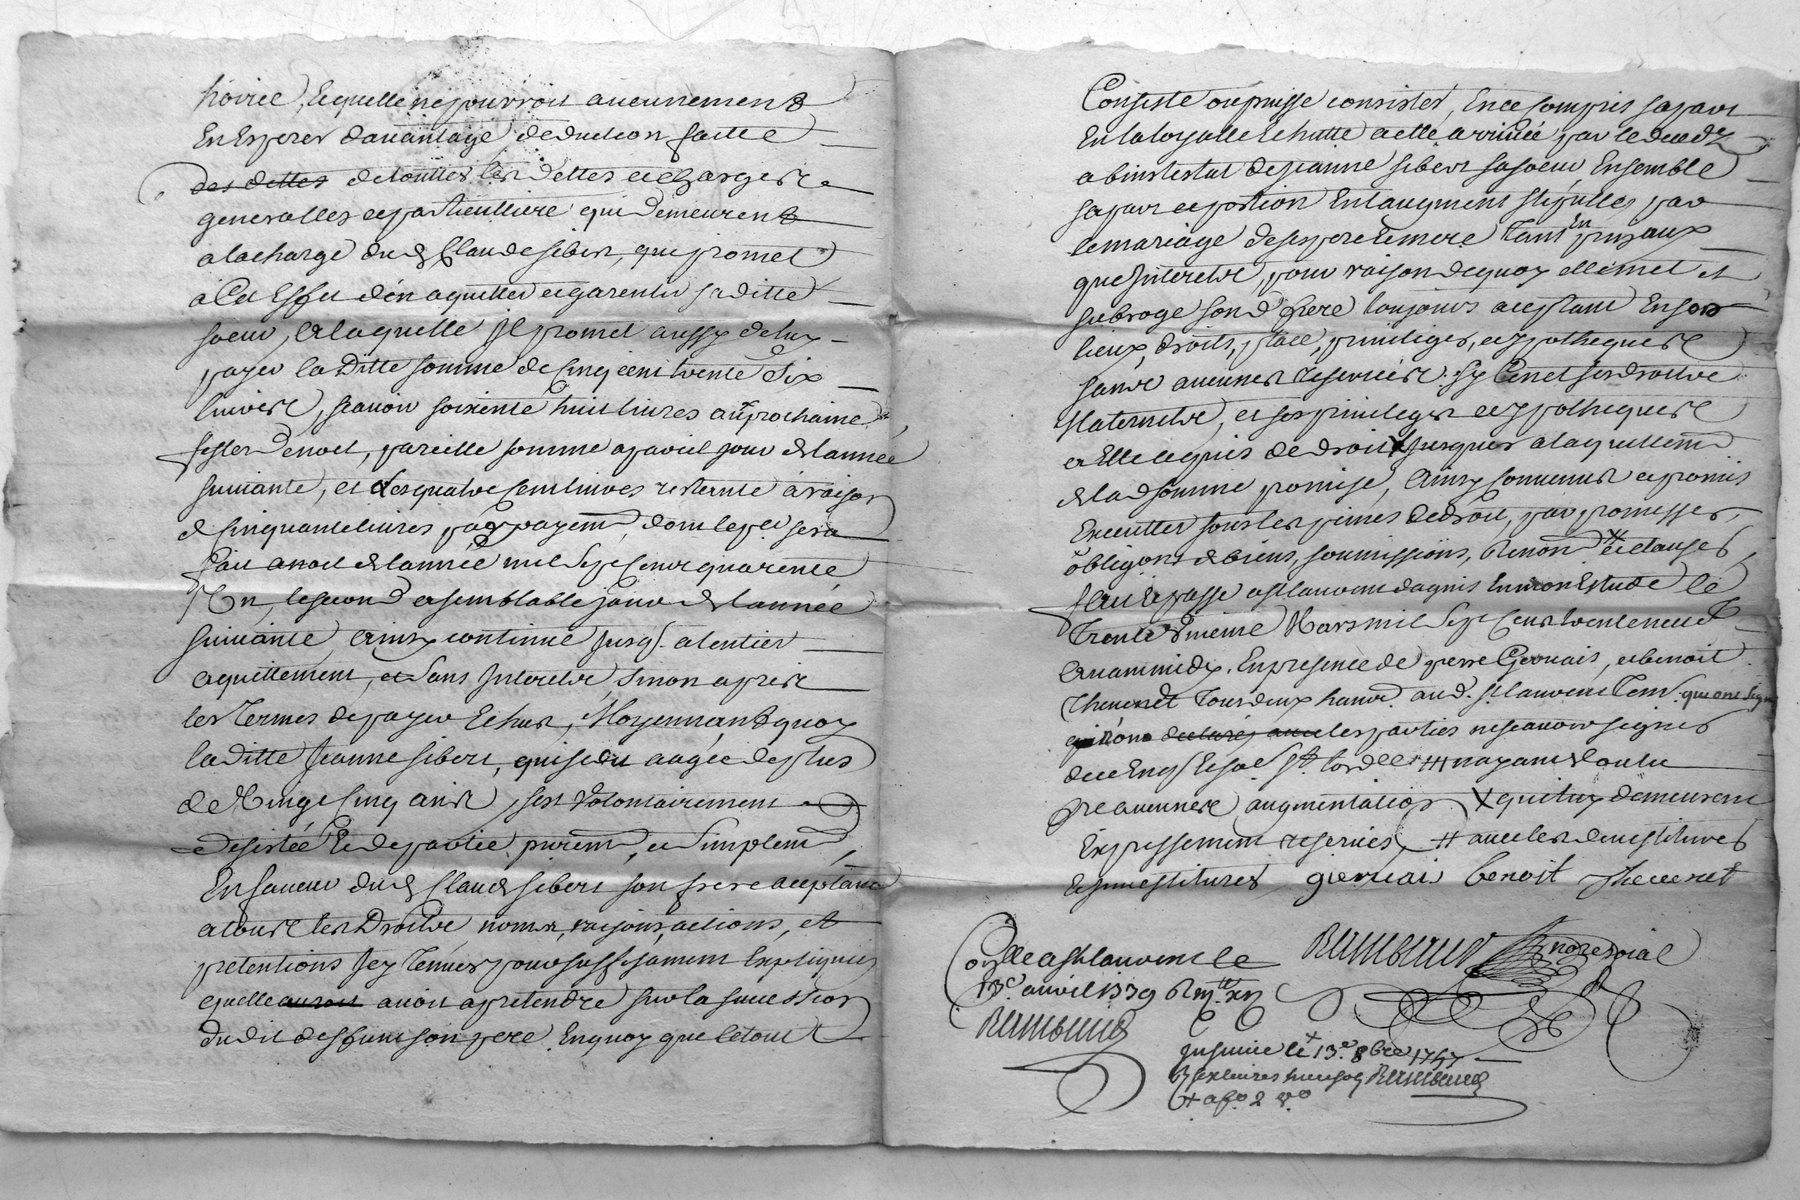 hoirie, lequelle ne pourroit aucunement
En Esperer davantage deduction faitte
des dettes de touttes les dettes et charges
generalles et particulliere qui demeurent
a la charge dud Claude Sibert, que promet
a Cet Effet d'en aquitter et garentir sa ditte
soeur, A laquelle Jl promet aussy de luy
payer la Ditte somme de Cinq cent trente Six
livres, scavoir soixente huit livres aux prochaine
festes de noel, pareille somme a pareil jour de lannée
suivante, et les quatre Cent livres restente a raison
de Cinquante livres par payemt, dont le pr. sera
fait a noel de lannée mil Sept Cent quarente
Un, le second a semblable jour de lannée
suivante Ainsy continué Jusq. a lentier
aquittement, et Sans Jnteretz, Sinon apres
les Termes de payer Echus, Moyennant quoy
la ditte Jeanne Sibert, qui se dit aagée de plus
de Vingt Cinq ans, s'est Volontairement
desistée Et departie puremt, et Simplemt,
En faveur dud Claude Sibert son frere acceptant
a tous les Droits, noms, raisons, actions, et
pretentions Jcy Tenues pour suffisament Expliquées
quelle auroit avoit a pretendre sur la succession
du dit deffunt son pere En quoy que le tout
Consiste ou puisse consister, En ce compris sa part
En la loyalle Echutte a elle arrivée par le deced
ab intestat de Jeanne Sibert sa soeur Ensemble
sa part et portion En laugment stipullé par
le mariage de ses pere et mere Tant En principaux
que Jnteretz, pour raison de quoy elle met et
subroge son d. frere toujours acceptant En son
lieux, droits, place, privileges, et ypotheques
sans aucunes reserves. Sy Ce n'est ses droits
Maternels, et ses privileges et ypotheques
a Elle aquis de droit Jusques a laquittemt
de lad somme promise, Ainsy convenus et promis
Executter sous les peines de droit, par promesses,
obligons de biens, soumissions, Renond et clauses
fait et passé a St laurent dagnis En mon Estude le
Trente Vnieme Mars mil Sept Cent trente neuf
Avant midy. En presence de pierre Gervais, et benoit
Thevenet Tous deux habit. aud. St laurent Tem. qui ont signé
les parties ne scavoir signer
de ce Enq. Et sol. St. lordce n'ayant Voulu
faire aucunes augmentation X qui luy demeurent
Expressement reservés, avec les vestitures
Et jnvestitures giervais benoit Thevenet
Conlle a St laurent le
13e. avril 1739
Jnsinué le 13e. 8bre 1747
fo 2 vo